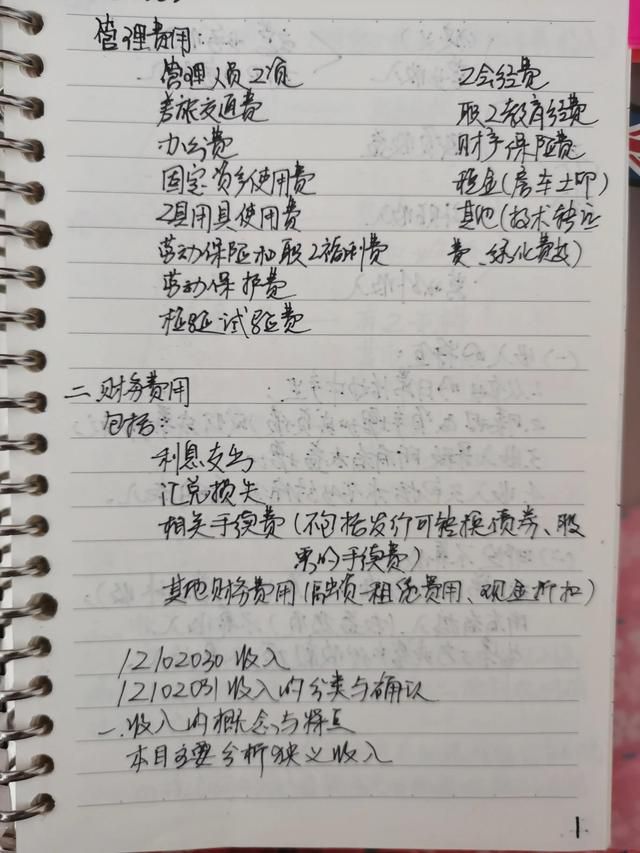 管理费用:
管理人员工资 工会经费
差旅交通费 职工教育经费
办公费 财产保险费
固定资产使用费 税金(房车土印)
工具用具使用费 其他(技术转让
劳动保险和职工福利费 费、绿化费等)
劳动保护费
检验试验费
二.财务费用
包括:
利息支出
汇兑损失
相关手续费(不包括发行可转换债券、股
票的手续费)
其他财务费用(融资租赁费用、现金折扣)
12102030 收入
12102031 收入的分类与确认
一.收入的概念与特点
本目主要分析狭义收入
1